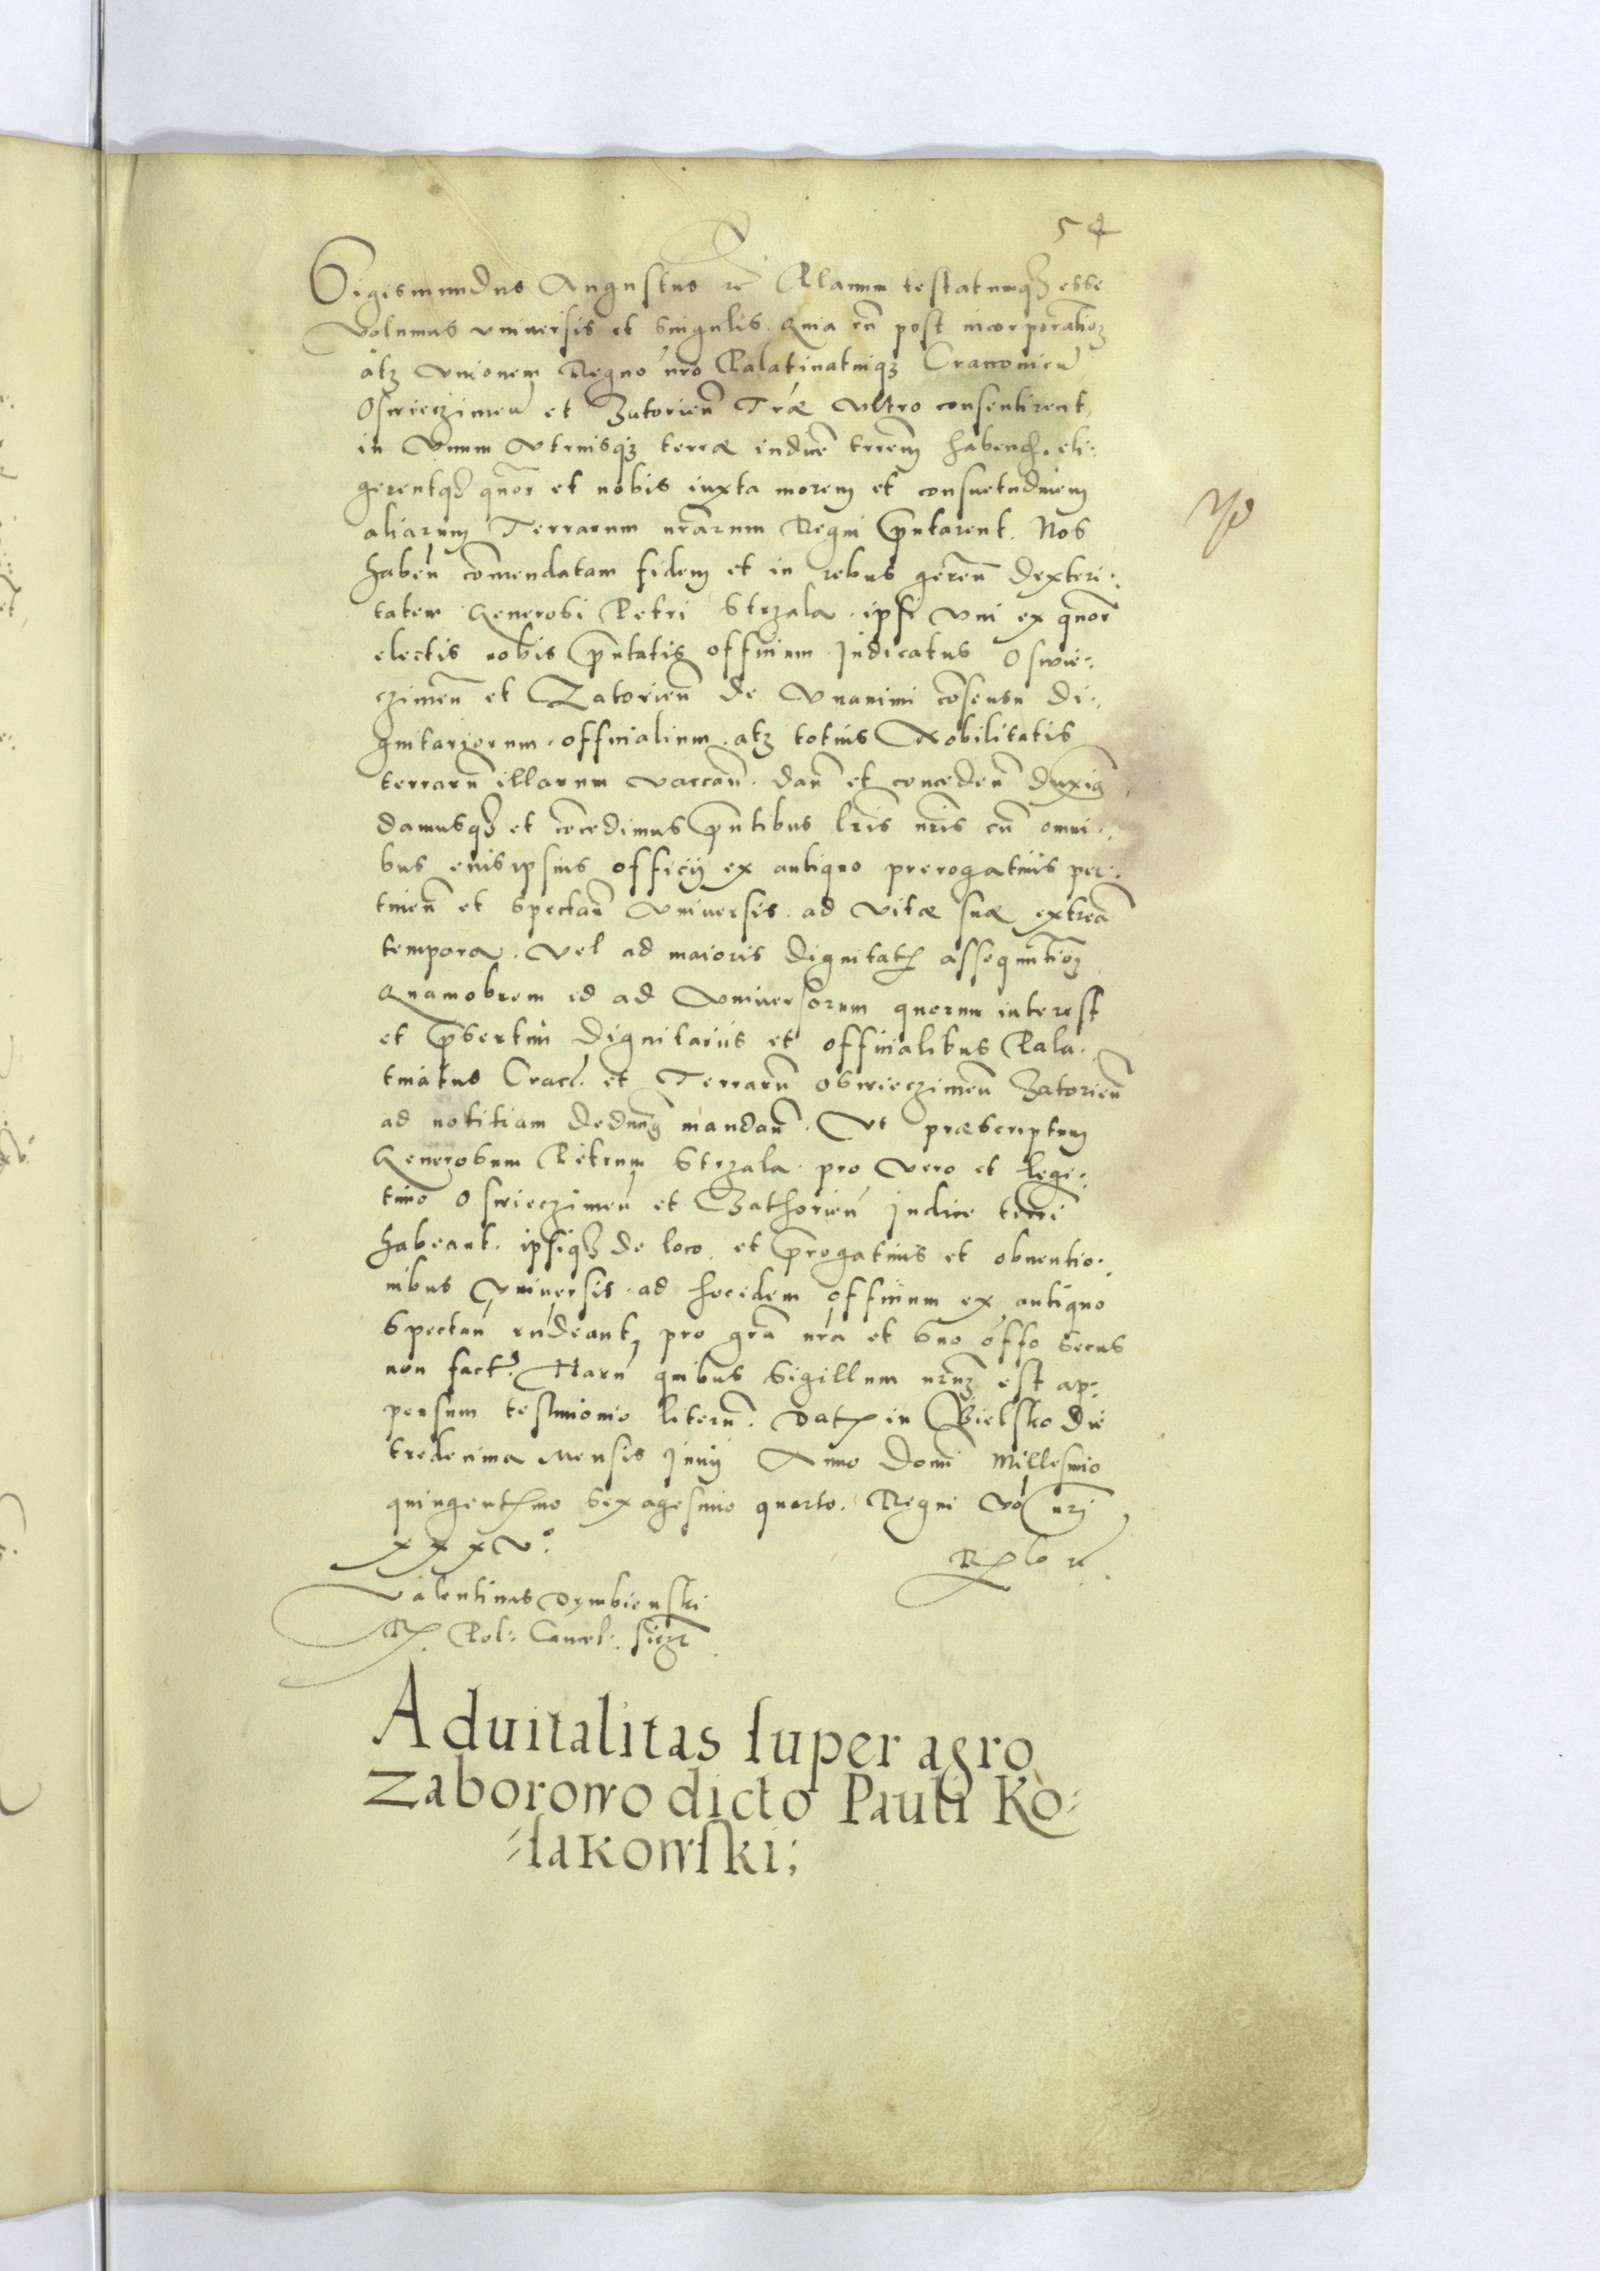 54
Sigismundus Augustus rc Planum testatumqз esse
volumus universis et singulis. Quia cū post incorporationeз
atqз unionem Regno nro Palatinatuiqз Cracovien̄
Oswieczimen̄ et Zatorien̄ Tr̄æ ultro consentirent
in unum utriusqз terræ iudicē trrēm habend. eli-
gerentqз quor et nobis iuxta morem et consuetudinem
aliarum Terrarum nr̄arum Regni pn̄tarent. Nos
haben̄ comendatam fidem et in rebus geren̄ dexteri-
tatem Generosi Petri Strzala. ipsi uni ex quor
electis nobis pn̄tatis officium Iudicatus Oswie-
czimen̄ et Zatorien̄ de unanimi cōsensu di-
gnitariorum. officialium. atqз totius Nobilitatis
terrarū illarum vaccan̄. dan̄ et conceden̄ duxim̄
damusqз et cōcedimus pn̄tibus lr̄is nr̄is cū omni-
bus eius ipsius officij ex antiquo prerogativis per-
tinen̄ et spectan̄ universis. ad vitæ suæ extrema
tempora. vel ad maioris dignitatis assequutioneз
Quamobrem id ad universorum quorum interest
et pr̄sertim dignitariis et officialibus Pala-
tinatus Crac. et Terrarū Oswieczimen̄ Zatorien̄
ad notitiam deducim̄ mandan̄. Ut præscriptum
Generosum Petrum Strzala. pro vero et legi-
timo Oswieczimen̄ et Zathorien̄ Iudice terrī
habeant. ipsiqз de loco. et pr̄rogativis et obventio-
nibus universis. ad hocidem officium ex antiquo
spectan̄ rn̄deant, pro gr̄a nr̄a et suo offo secus
non fact. Harū quibus sigillum nr̄uз est ap-
pensum testimonio literū. Dat in Bielsko die
tredecima mensis Iunij Anno Domī Millesimo
quingentmo sexagesimo quarto. Regni vō nr̄i
xxxv°.
Valentinus Dembienski
R. Pol: Cancel:
Aduitalitas super agro
Zaborowo dicto Pauli Ko-
-sakowski;